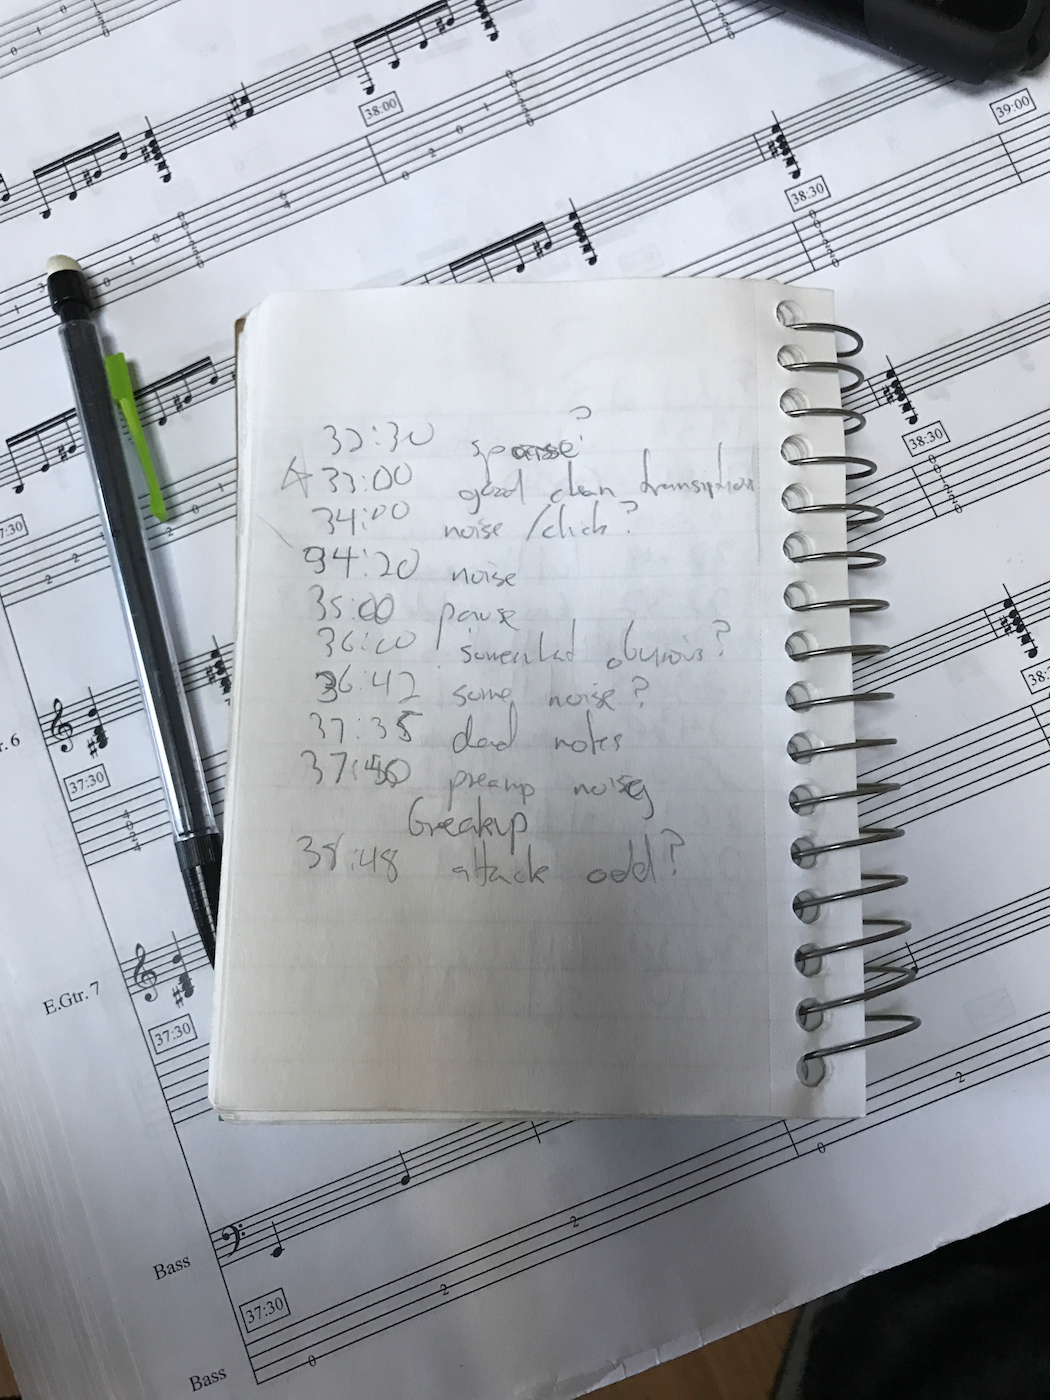 38:00
39:00
38:30
38:30
?
32:30
33:00 good clean
34:00 noise/click?
34:20 noise
35:00 pause
36:00 obvious?
36:42 some noise?
37:35 dead notes
preamp noisey
breakup
38:48 attack odd?
7:30
38:
r.6
37:30
E.Gtr. 7
37:30
Bass
37:30
Bass